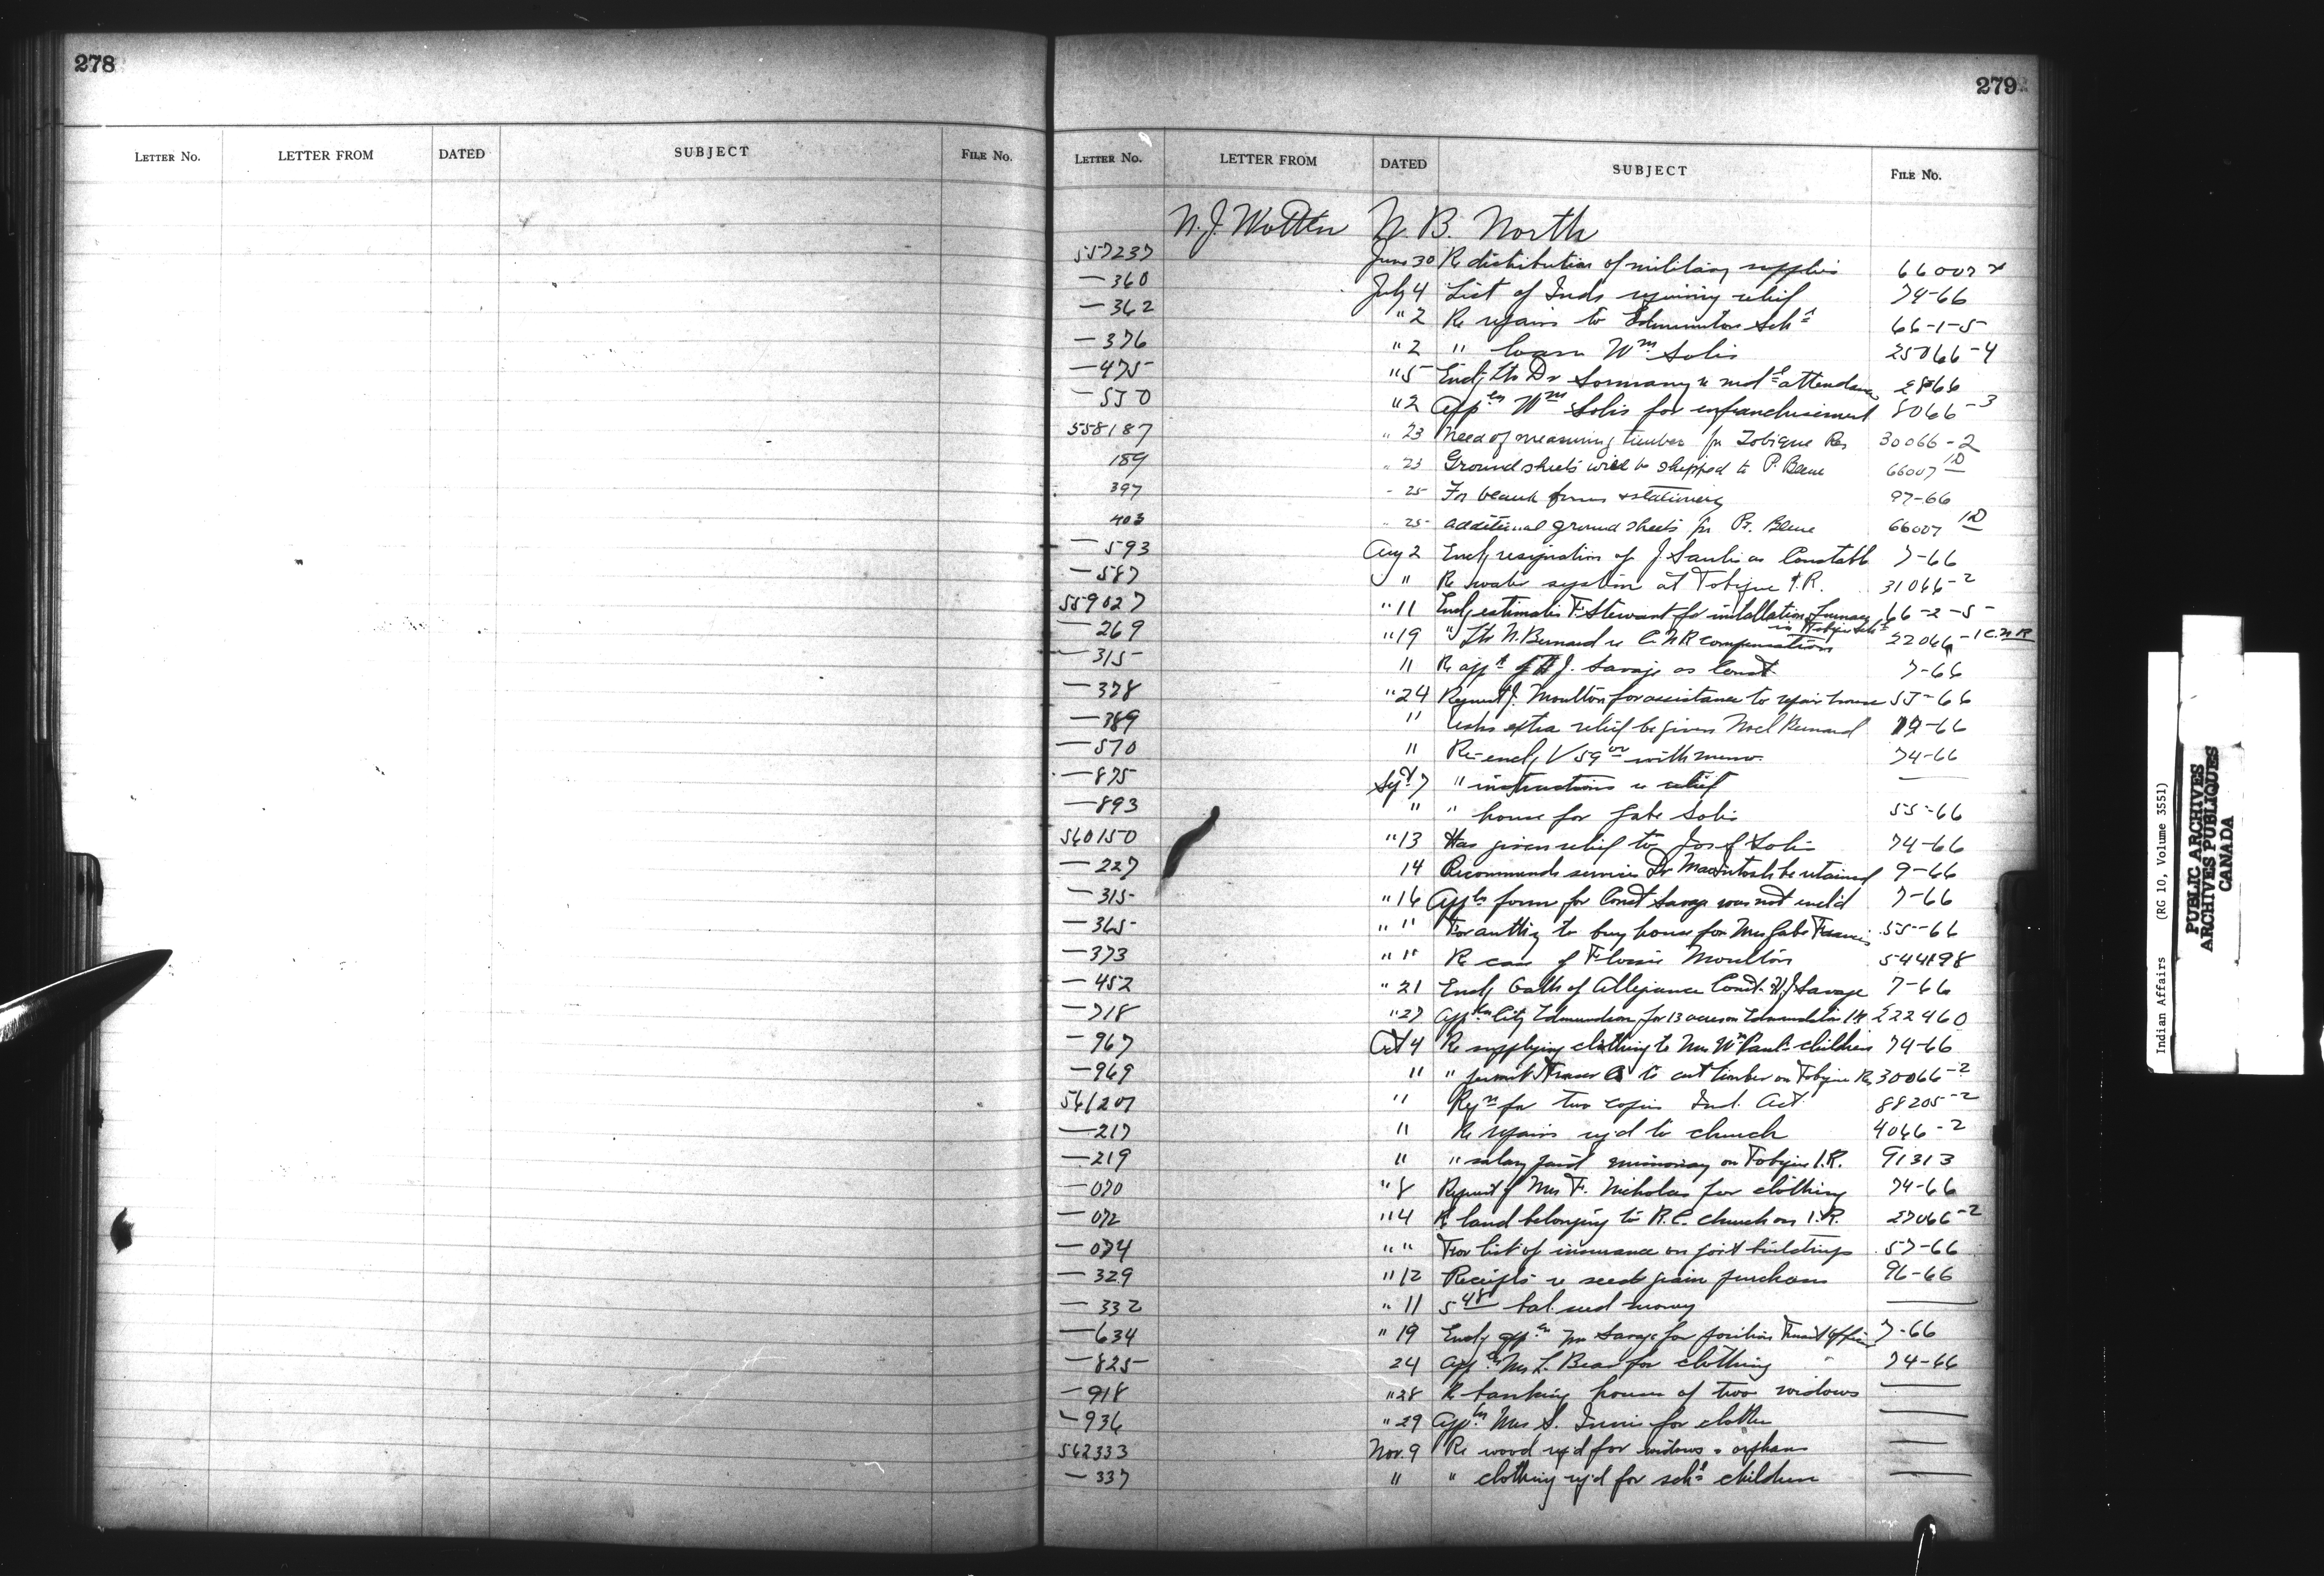 278
LETTER NO. LETTER FROM DATED SUBJECT FILE NO.
279
LETTER NO. LETTER FROM DATED SUBJECT FILE NO.
N. J. Wotten N. B. North
557237 June 30 Re distribution of military supplies 66007
— 360 July 4 List of Inds requiring relief 74-66
— 362 " 2 Re repairs to Edmunston Schl 66-1-5
— 376 " 2 " loan Wm Solis 25066-4
— 475 " 5 Encl ltr Dr Sormany re medl attendance 2866
— 530 " 2 Appln Wm Solis for enfranchisement 8066-3
558187 " 23 Need of measuring timber fr Tobique Res 30066-2
189 " 23 Ground sheets will be shipped to P. 66007 10
397 " 25 For blank forms & stationery 97-66
403 " 25 additional ground sheets fr 66007 10
— 593 Aug 2 Encl resignation of J. Saulis as Constable 7-66
— 587 " Re water system at Tobique I.R. 31066-2
559027 " 11 Encl estimates F. Stewart for installation furnace 66-2-5
in Tobique Schl
— 269 " 19 " ltr N. Bernard re C.N.R compensation 22066-1 C.N.R
— 315 " Re appt of J. Savage as Const 7-66
— 378 " 24 Request J. Moulton for assistance to repair house 55-66
— 389 " Asks extra relief be given Noel Bernard -66
— 570 " Re-encl V 59 with memo. 74-66
— 875 Sept 7 " instructions re relief —
— 893 " " house for Gabe Solis 55-66
560150 " 13 Has given relief to Josef Solis 74-66
— 227 14 Recommends services Dr MacIntosh be retained 9-66
— 315 " 16 Appln form for Const Savage was not encl'd 7-66
— 365 " " For authty to buy house from Mrs Gabe Francis 55-66
— 373 " " Re case of Flossie Moulton 544198
— 452 " 21 Encl Oath of Allegiance Const. H.J. Savage 7-66
— 718 " 27 Appln City Edmundston for 13 acres on Edmundston I.R. 222460
— 967 Oct 4 Re supplying clothing to Mrs Wm Paul's children 74-66
— 969 " " permit Fraser Co to cut timber on Tobique Res 30066-2
561207 " Reqn for two copies Ind. Act 88205-2
— 217 " Re repairs req'd to church 4066-2
— 219 " " salary paid missionary on Tobique I.R. 91313
— 070 " 8 Request of Mrs F. Nicholas for clothing 74-66
— 072 " 4 Re land belonging to R.C. church on I.R. 27066-2
— 074 " " For list of insurance on govt buildings 57-66
— 329 " 12 Receipts re seed grain purchases 96-66
— 332 " 11 5 48 bal. seed money —
— 634 " 19 Encl appln Savage for position Truant Officer 7-66
— 825 24 Appln Mrs L. Bear for clothing 74-66
— 918 " 28 Re banking houses of two widows —
— 936 " 29 Appln Mrs S. for clothes —
562333 Nov. 9 Re wood req'd for widows & orphans —
— 337 " " clothing req'd for schl children —
Indian Affairs (RG 10, Volume 3551)
PUBLIC ARCHIVES
ARCHIVES PUBLIQUES
CANADA